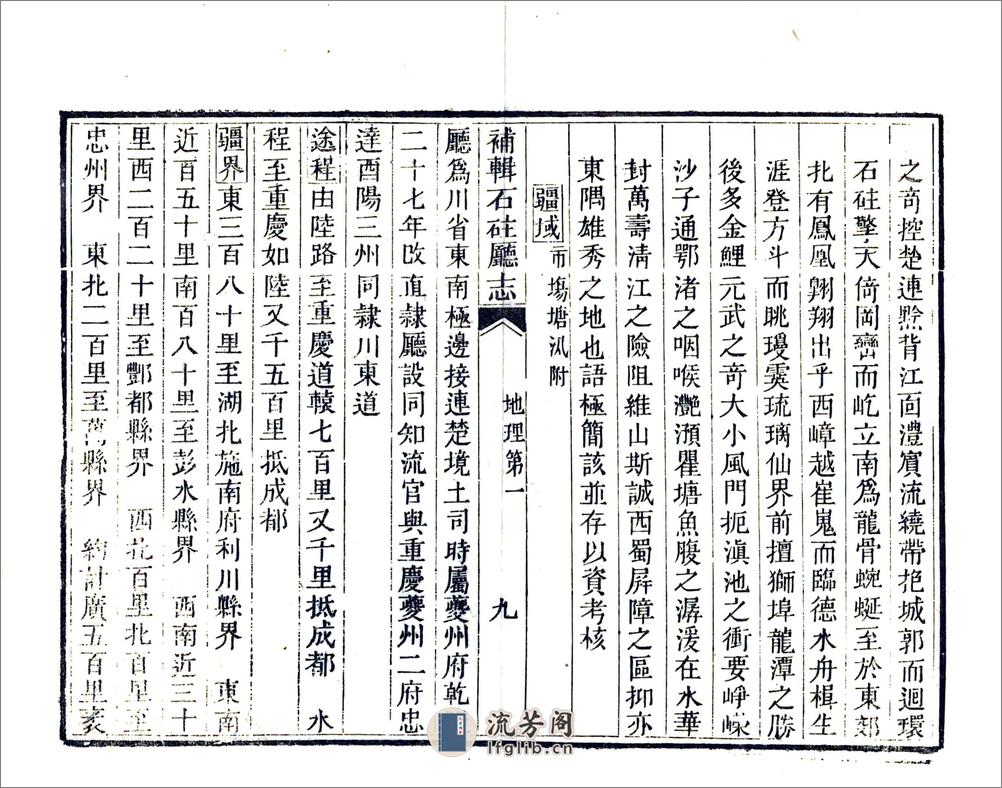 之奇控楚連黔背江面澧賓流繞帶抱城郭而迴環
石砫擎天倚岡巒而屹立南爲龍骨蜿蜒至於東郊
北有鳳凰翺翔出乎西嶂越崔嵬而臨德水舟楫生
涯登方斗而眺璦霙琉璃仙界前擅獅埠龍潭之勝
後多金鯉元武之奇大小風門扼滇池之衝要崢嶸
沙子通鄂渚之咽喉灔澦瞿塘魚腹之潺湲在水華
封萬壽淸江之險阻維山斯誠西蜀屏障之區抑亦
東隅雄秀之地也語極簡該並存以資考核
疆域 市塲塘汛附
補輯石砫廳志 地理第一 九
廳爲川省東南極邊接連楚境土司時屬夔州府乾
二十七年改直隸廳設同知流官與重慶夔州二府忠
達酉陽三州同隸川東道
途程由陸路至重慶道轅七百里又千里抵成都 水
程至重慶如陸又千五百里抵成都
疆界東三百八十里至湖北施南府利川縣界 東南
近百五十里南百八十里至彭水縣界 西南近三十
里西二百二十里至酆都縣界 西北百里北百里至
忠州界 東北二百里至萬縣界 約計廣五百里袤
流芳阁
lfglib.cn